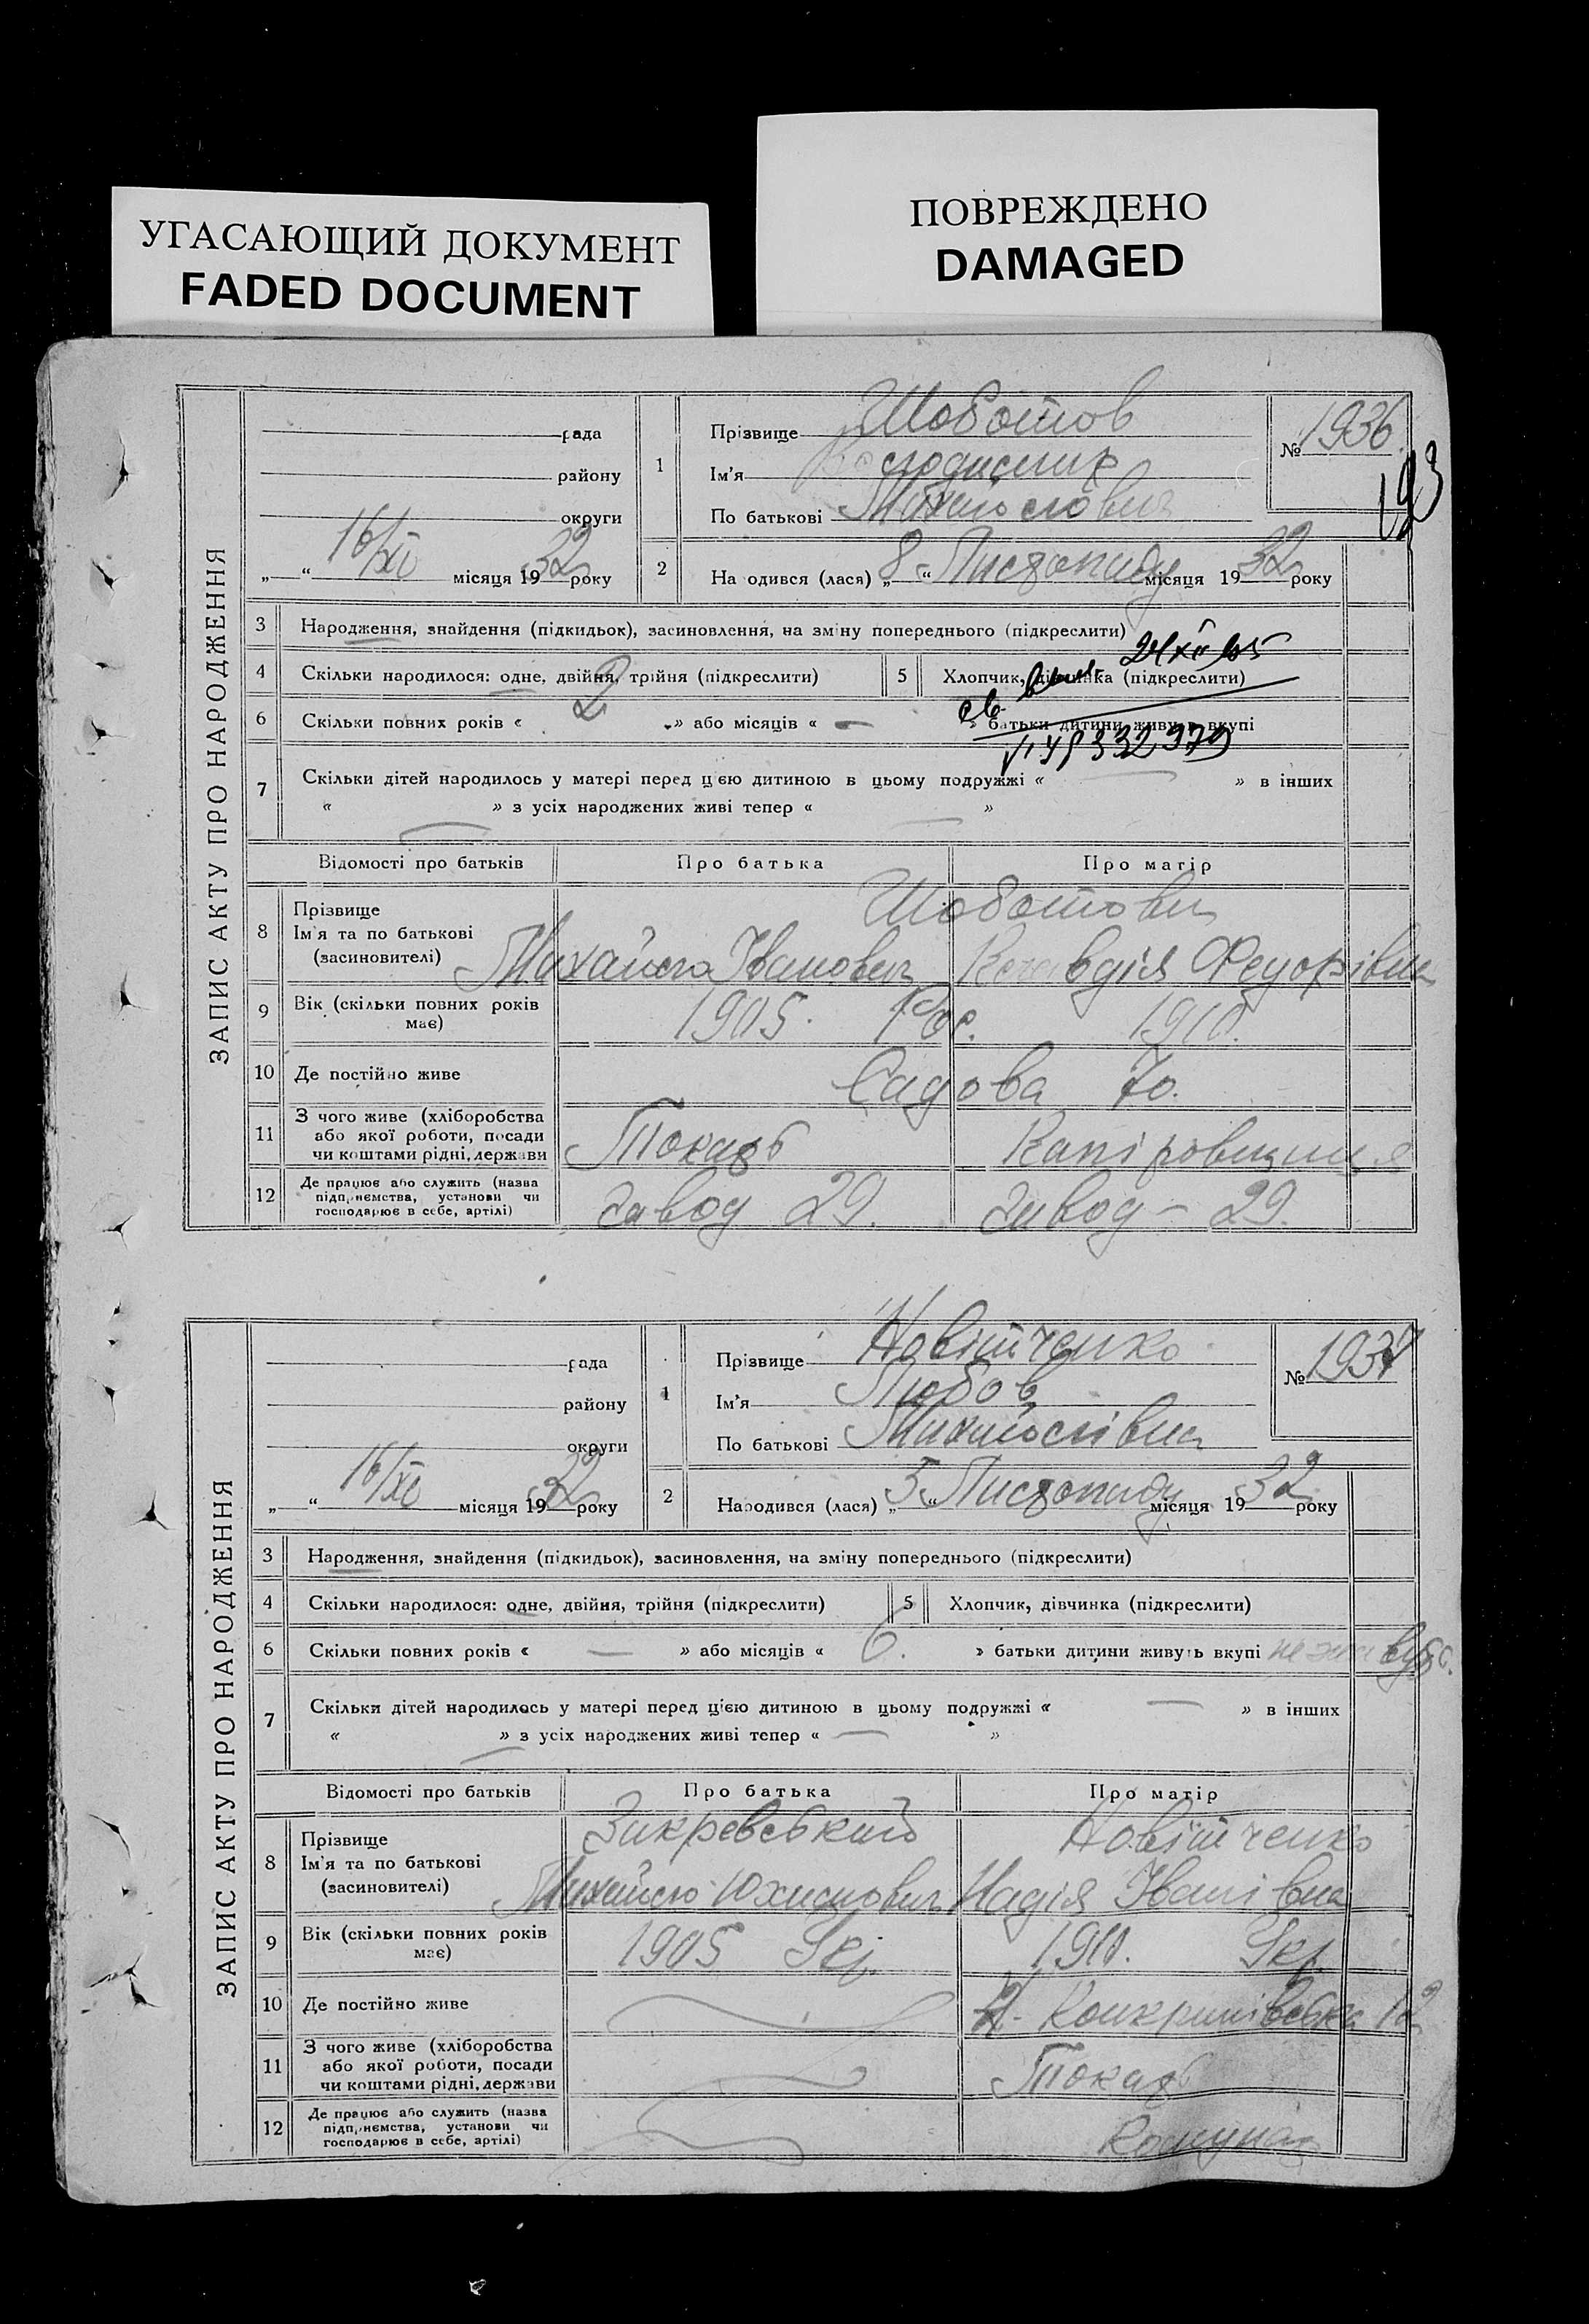 УГАСАЮЩИЙ ДОКУМЕНТ
FADED DOCUMENT
ПОВРЕЖДЕНО
DAMAGED
ЗАПИС АКТУ ПРО НАРОДЖЕННЯ
рада
району
округи
16/XI місяця 1932 року
1
Прізвище Шоботов
Ім'я
По батькові Михайлович
№ 1936
193
2
На одився (лася) „8“ Листопаду місяця 1932 року
3 Народження, знайдення (підкидьок), засиновлення, на зміну попереднього (підкреслити)
4 Скільки народилося: одне, двійня, трійня (підкреслити)
5 Хлопчик, дівчинка (підкреслити)
6 Скільки повних років « 2 » або місяців « — » батьки дитини живуть вкупі
7 Скільки дітей народилось у матері перед цією дитиною в цьому подружжі « — » в інших
« — » з усіх народжених живі тепер « — »
Відомості про батьків Про батька Про матір
8 Прізвище
Ім'я та по батькові
(засиновителі)
Шоботови
Михайло Іванович Клавдія Федорівна
9 Вік (скільки повних років має)
1905. Рос. 1910.
10 Де постійно живе Садова 70.
11 З чого живе (хліборобства або якої роботи, посади чи коштами рідні, держави
Токарь
12 Де працює або служить (назва підприємства, установи чи господарює в себе, артілі)
Завод 29. Завод – 29.
ЗАПИС АКТУ ПРО НАРОДЖЕННЯ
рада
району
округи
16/XI місяця 1932 року
1
Прізвище Новітченко
Ім'я Любов
По батькові Михайлівна
№ 1937
2
Народився (лася) „5“ Листопаду місяця 1932 року
3 Народження, знайдення (підкидьок), засиновлення, на зміну попереднього (підкреслити)
4 Скільки народилося: одне, двійня, трійня (підкреслити)
5 Хлопчик, дівчинка (підкреслити)
6 Скільки повних років « — » або місяців « 6. » батьки дитини живуть вкупі
7 Скільки дітей народилось у матері перед цією дитиною в цьому подружжі « — » в інших
« — » з усіх народжених живі тепер « — »
Відомості про батьків Про батька Про матір
8 Прізвище
Ім'я та по батькові
(засиновителі)
Закревський Новітченко
Михайло Юхимович Надія Іванівна
9 Вік (скільки повних років має)
1905 Укр. 1910. Укр.
10 Де постійно живе
12
11 З чого живе (хліборобства або якої роботи, посади чи коштами рідні, держави
Токарь
12 Де працює або служить (назва підприємства, установи чи господарює в себе, артілі)
Комунар